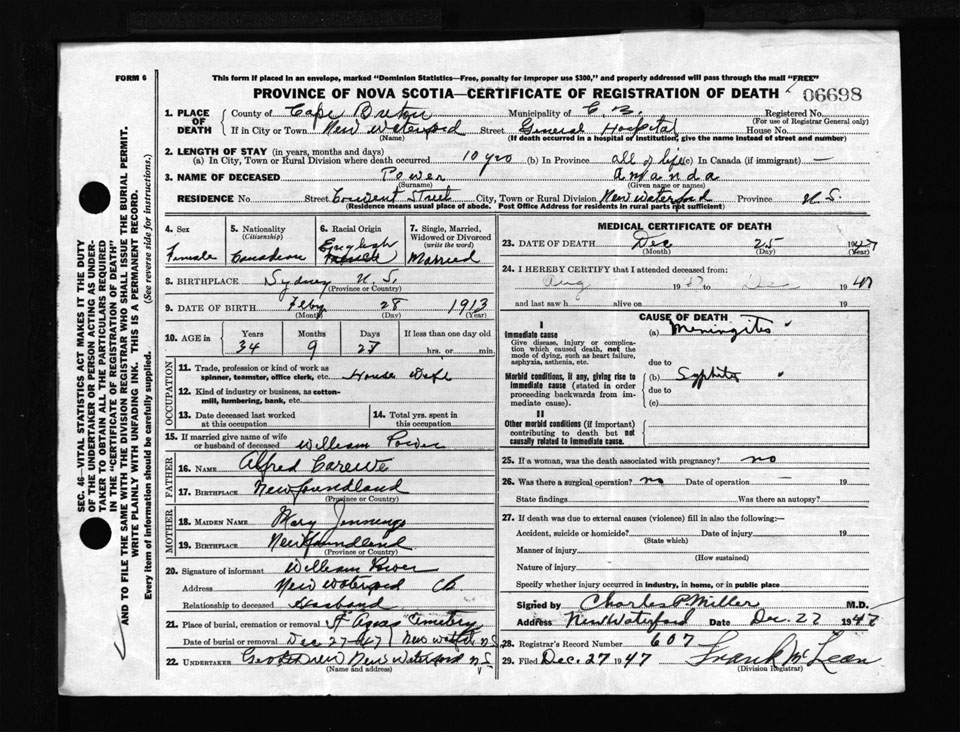 FORM 6
This form if placed in an envelope, marked "Dominion Statistics—Free, penalty for improper use $300," and properly addressed will pass through the mail "FREE"
PROVINCE OF NOVA SCOTIA—CERTIFICATE OF REGISTRATION OF DEATH 06698
1. PLACE OF DEATH
County of Cape Breton Municipality of C B. Registered No.
(For use of Registrar General only)
If in City or Town New Waterford Street General Hospital House No.
(Name) (If death occurred in a hospital or institution, give the name instead of street and number)
2. LENGTH OF STAY (in years, months and days)
(a) In City, Town or Rural Division where death occurred 10 yrs (b) In Province all of life (c) In Canada (if immigrant) —
3. NAME OF DECEASED Power Amanda
(Surname) (Given name or names)
RESIDENCE No. Street Street City, Town or Rural Division New Waterford Province N.S.
(Residence means usual place of abode. Post Office Address for residents in rural parts not sufficient)
4. Sex
Female
5. Nationality
(Citizenship)
Canadian
6. Racial Origin
English
7. Single, Married, Widowed or Divorced
(write the word)
Married
8. BIRTHPLACE Sydney N.S.
(Province or Country)
9. DATE OF BIRTH Feby 28 1913
(Month) (Day) (Year)
10. AGE in
Years Months Days If less than one day old
34 9 27 hrs. or min.
OCCUPATION
11. Trade, profession or kind of work as spinner, teamster, office clerk, etc. House Wife
12. Kind of industry or business, as cotton-mill, lumbering, bank, etc.
13. Date deceased last worked at this occupation
14. Total yrs. spent in this occupation
15. If married give name of wife or husband of deceased William Power
FATHER
16. NAME Alfred Carewe
17. BIRTHPLACE Newfoundland
(Province or Country)
MOTHER
18. MAIDEN NAME Mary Jennings
19. BIRTHPLACE Newfoundland
(Province or Country)
20. Signature of informant William Power
Address New Waterford CB
Relationship to deceased Husband
21. Place of burial, cremation or removal St Agnes Cemetery
Date of burial or removal Dec 27 - 1947 New Waterford N.S.
22. UNDERTAKER New Waterford N.S.
(Name and address)
MEDICAL CERTIFICATE OF DEATH
23. DATE OF DEATH Dec 25 1947
(Month) (Day) (Year)
24. I HEREBY CERTIFY that I attended deceased from:
Aug 1947 to Dec 1947
and last saw h alive on 19
CAUSE OF DEATH
I
Immediate cause (a) Meningitis
Give disease, injury or complication which caused death, not the mode of dying, such as heart failure, asphyxia, asthenia, etc.
due to
Morbid conditions, if any, giving rise to immediate cause (stated in order proceeding backwards from immediate cause).
(b) Syphilis
due to
(c)
II
Other morbid conditions (if important) contributing to death but not causally related to immediate cause.
25. If a woman, was the death associated with pregnancy? no
26. Was there a surgical operation? no Date of operation — 19
State findings Was there an autopsy?
27. If death was due to external causes (violence) fill in also the following:—
Accident, suicide or homicide? Date of injury 19
(State which)
Manner of injury
(How sustained)
Nature of injury
Specify whether injury occurred in industry, in home, or in public place
Signed by Charles P Miller M.D.
Address New Waterford Date Dec. 27 1947
28. Registrar's Record Number 607
29. Filed Dec. 27 1947 Frank McLean
(Division Registrar)
SEC. 46—VITAL STATISTICS ACT MAKES IT THE DUTY
OF THE UNDERTAKER OR PERSON ACTING AS UNDER-
TAKER TO OBTAIN ALL THE PARTICULARS REQUIRED
IN THE "CERTIFICATE OF REGISTRATION OF DEATH"
AND TO FILE THE SAME WITH THE DIVISION REGISTRAR WHO SHALL ISSUE THE BURIAL PERMIT.
WRITE PLAINLY WITH UNFADING INK. THIS IS A PERMANENT RECORD.
Every item of information should be carefully supplied. (See reverse side for instructions.)